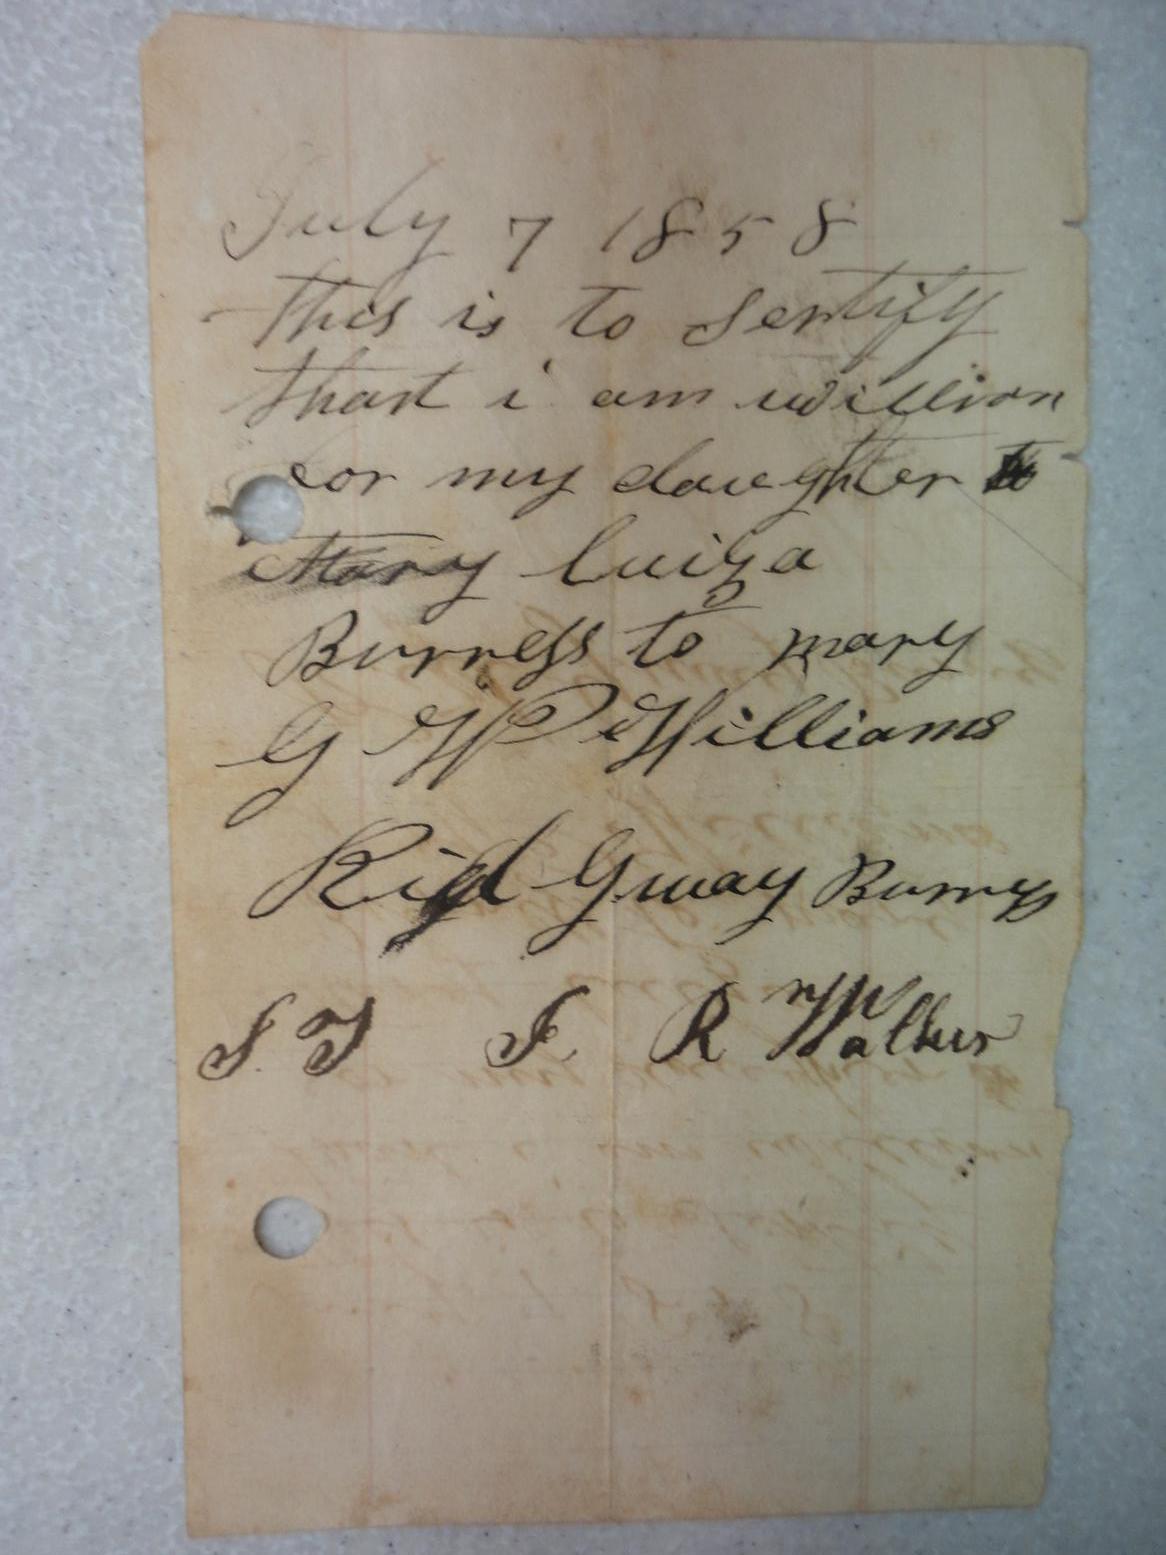 July 7 1858
this is to sertify
that i am willion
for my daughter to
Mary luiza
Burress to mary
G W Williams
Rid Gway Burress
J. R Walker